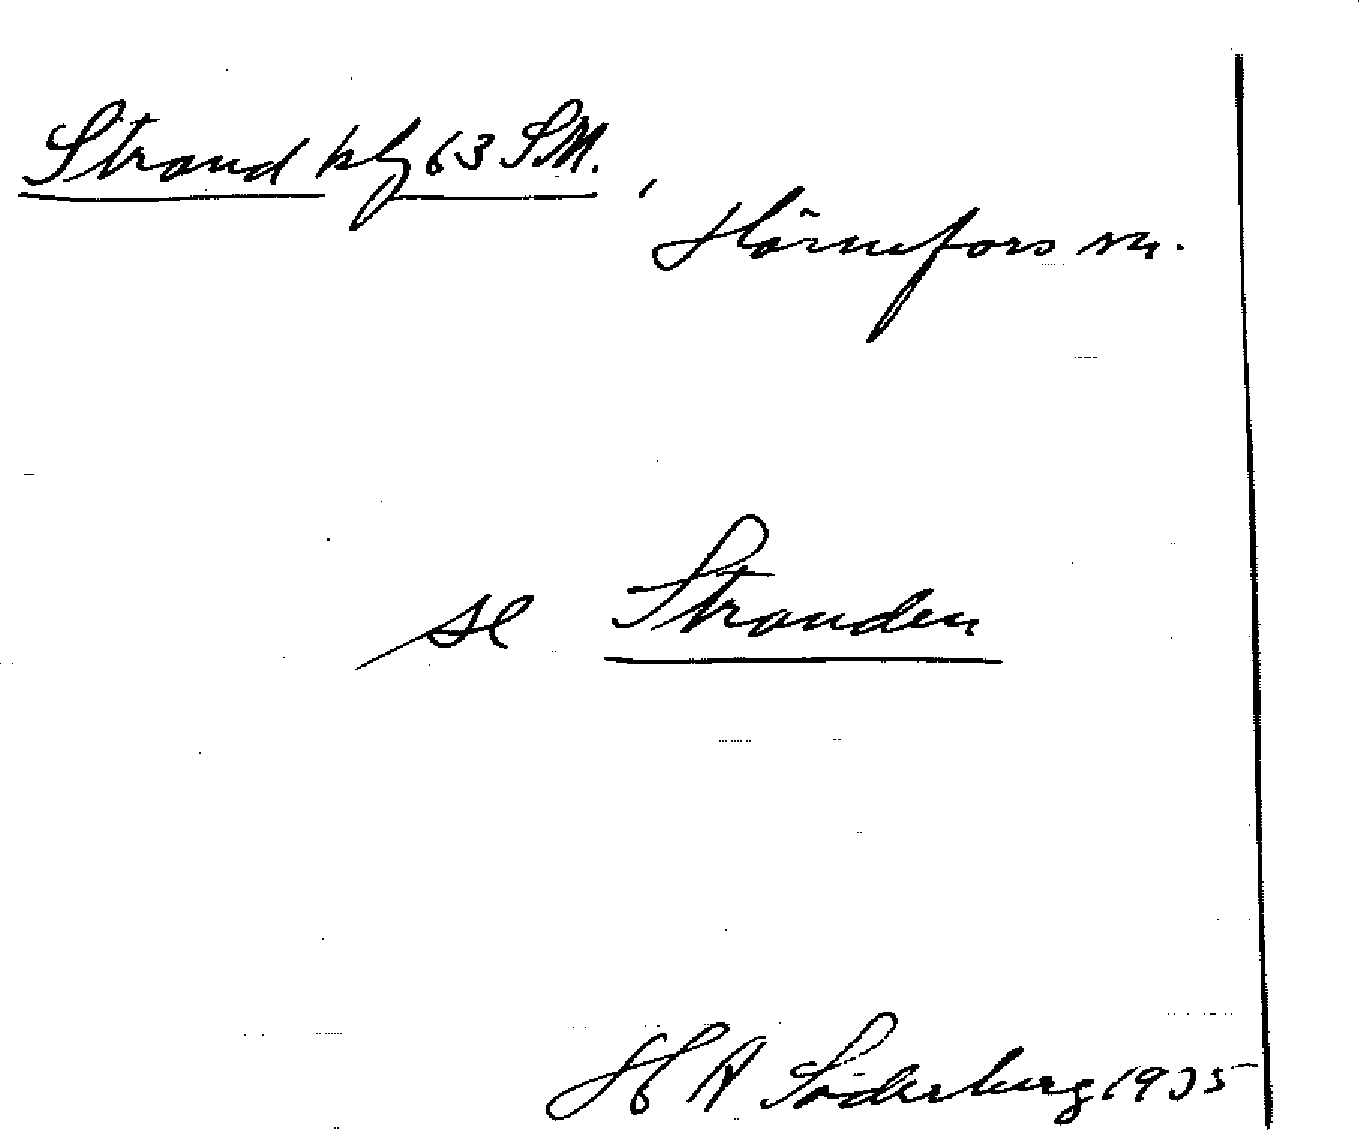 Strand blg 63 S.M.,
Hörnefors sn.
se Stranden
H A Söderberg 1935